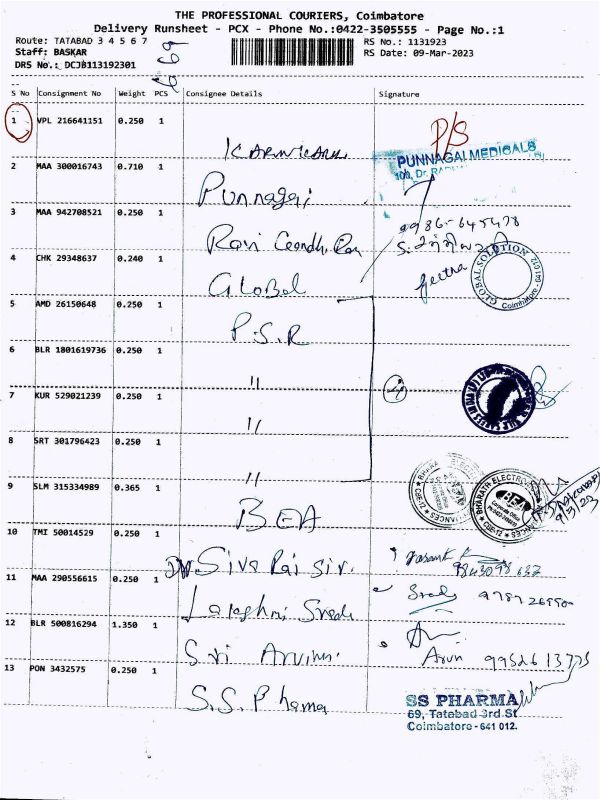 THE PROFESSIONAL COURIERS, Coimbatore
Delivery Runsheet - PCX - Phone No.:0422-3505555 - Page No.:1
Route: TATABAD 3 4 5 6 7
RS No.: 1131923
Staff: BASKAR
RS Date: 09-Mar-2023
DRS No.: DCJB113192301
S No Consignment No Weight PCS Consignee Details Signature
1 VPL 216641151 0.250 1
P/S
2 MAA 300016743 0.710 1 Punnagai
PUNNAGAI MEDICALS
100, Dr.
3 MAA 942708521 0.250 1 Ravi
4 CHK 29348637 0.240 1 Global
Geetha
GLOBAL SOLUTION
Coimbatore - 641 012
5 AMD 26150648 0.250 1 P.S.R
6 BLR 1801619736 0.250 1 "
7 KUR 529021239 0.250 1 "
4
8 SRT 301796423 0.250 1 "
9 SLM 315334989 0.365 1 BEA
BHARATH ELECTRO
BEA
9/3/23
10 TMI 50014529 0.250 1 Dr. Siva Raj Sir.
11 MAA 290556615 0.250 1
12 BLR 500816294 1.350 1 Sri
Arun
13 PON 3432575 0.250 1 S.S. Pharma
SS PHARMA
69, Tatabad 3rd St
Coimbatore - 641 012.